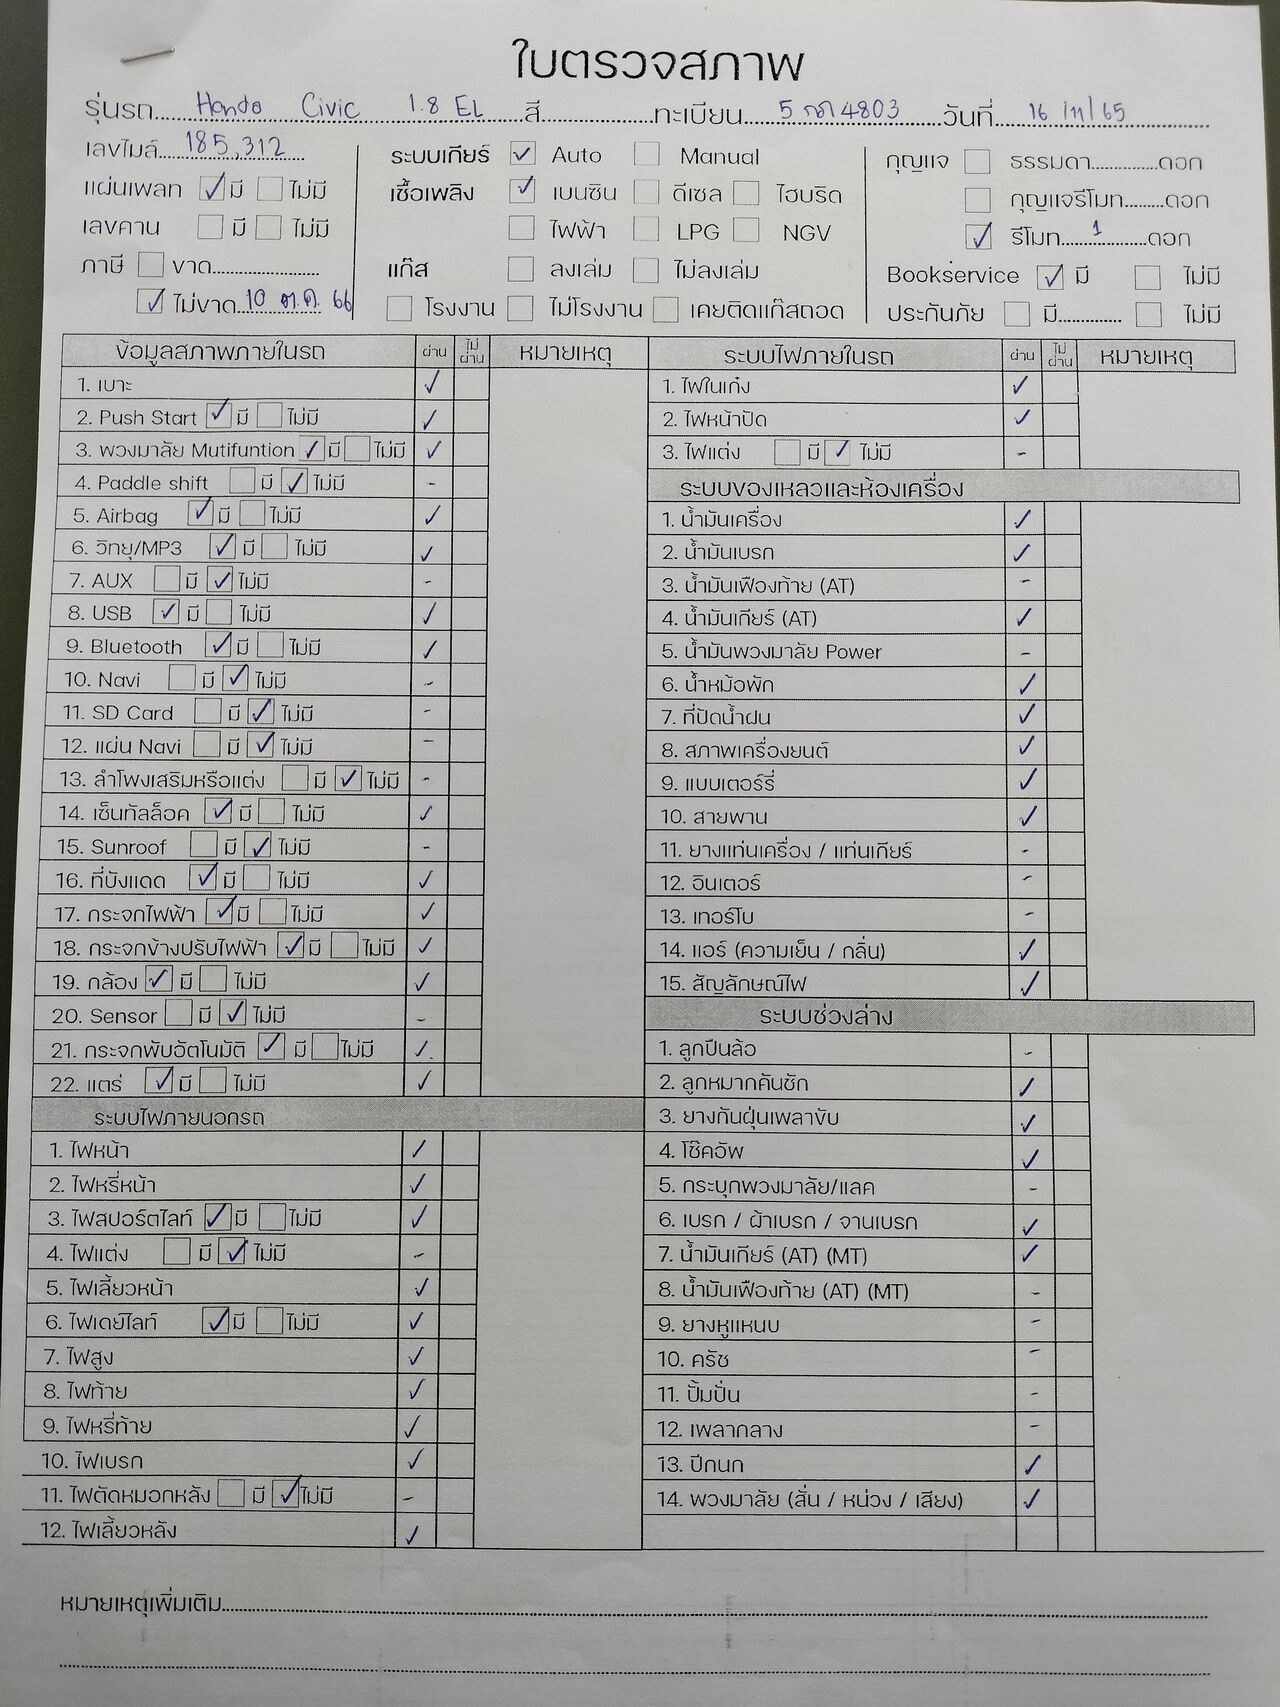 ใบตรวจสภาพ
รุ่นรถ Honda Civic 1.8 EL สี ทะเบียน 5 กก 4803 วันที่ 16 /11/ 65
เลขไมล์ 185,312 ระบบเกียร์ ✓ Auto Manual กุญแจ ธรรมดา ดอก
แผ่นเพลท ✓ มี ไม่มี เชื้อเพลิง ✓ เบนซิน ดีเซล ไฮบริด กุญแจรีโมท ดอก
เลขคาน มี ไม่มี ไฟฟ้า LPG NGV ✓ รีโมท 1 ดอก
ภาษี ขาด แก๊ส ลงเล่ม ไม่ลงเล่ม Bookservice ✓ มี ไม่มี
✓ ไม่ขาด 10 ต.ค. 66 โรงงาน ไม่โรงงาน เคยติดแก๊สถอด ประกันภัย มี ไม่มี
ข้อมูลสภาพภายในรถ ผ่าน ไม่ผ่าน หมายเหตุ
1. เบาะ ✓
2. Push Start ✓ มี ไม่มี ✓
3. พวงมาลัย Mutifuntion ✓ มี ไม่มี ✓
4. Paddle shift มี ✓ ไม่มี -
5. Airbag ✓ มี ไม่มี ✓
6. วิทยุ/MP3 ✓ มี ไม่มี ✓
7. AUX มี ✓ ไม่มี -
8. USB ✓ มี ไม่มี ✓
9. Bluetooth ✓ มี ไม่มี ✓
10. Navi มี ✓ ไม่มี -
11. SD Card มี ✓ ไม่มี -
12. แผ่น Navi มี ✓ ไม่มี -
13. ลำโพงเสริมหรือแต่ง มี ✓ ไม่มี -
14. เซ็นทัลล็อค ✓ มี ไม่มี ✓
15. Sunroof มี ✓ ไม่มี -
16. ที่บังแดด ✓ มี ไม่มี ✓
17. กระจกไฟฟ้า ✓ มี ไม่มี ✓
18. กระจกข้างปรับไฟฟ้า ✓ มี ไม่มี ✓
19. กล้อง ✓ มี ไม่มี ✓
20. Sensor มี ✓ ไม่มี -
21. กระจกพับอัตโนมัติ ✓ มี ไม่มี ✓
22. แตร่ ✓ มี ไม่มี ✓
ระบบไฟภายนอกรถ
1. ไฟหน้า ✓
2. ไฟหรี่หน้า ✓
3. ไฟสปอร์ตไลท์ ✓ มี ไม่มี ✓
4. ไฟแต่ง มี ✓ ไม่มี -
5. ไฟเลี้ยวหน้า ✓
6. ไฟเดย์ไลท์ ✓ มี ไม่มี ✓
7. ไฟสูง ✓
8. ไฟท้าย ✓
9. ไฟหรี่ท้าย ✓
10. ไฟเบรก ✓
11. ไฟตัดหมอกหลัง มี ✓ ไม่มี -
12. ไฟเลี้ยวหลัง ✓
ระบบไฟภายในรถ ผ่าน ไม่ผ่าน หมายเหตุ
1. ไฟในเก๋ง ✓
2. ไฟหน้าปัด ✓
3. ไฟแต่ง มี ✓ ไม่มี -
ระบบของเหลวและห้องเครื่อง
1. น้ำมันเครื่อง ✓
2. น้ำมันเบรก ✓
3. น้ำมันเฟืองท้าย (AT) -
4. น้ำมันเกียร์ (AT) ✓
5. น้ำมันพวงมาลัย Power -
6. น้ำหม้อพัก ✓
7. ที่ปัดน้ำฝน ✓
8. สภาพเครื่องยนต์ ✓
9. แบบเตอร์รี่ ✓
10. สายพาน ✓
11. ยางแท่นเครื่อง / แท่นเกียร์ -
12. อินเตอร์ -
13. เทอร์โบ -
14. แอร์ (ความเย็น / กลิ่น) ✓
15. สัญลักษณ์ไฟ ✓
ระบบช่วงล่าง
1. ลูกปืนล้อ -
2. ลูกหมากคันชัก ✓
3. ยางกันฝุ่นเพลาขับ ✓
4. โช๊คอัพ ✓
5. กระบุกพวงมาลัย/แลค -
6. เบรก / ผ้าเบรก / จานเบรก ✓
7. น้ำมันเกียร์ (AT) (MT) ✓
8. น้ำมันเฟืองท้าย (AT) (MT) -
9. ยางหูแหนบ -
10. ครัช -
11. ปั้มปั่น -
12. เพลากลาง -
13. ปีกนก ✓
14. พวงมาลัย (สั่น / หน่วง / เสียง) ✓
หมายเหตุเพิ่มเติม